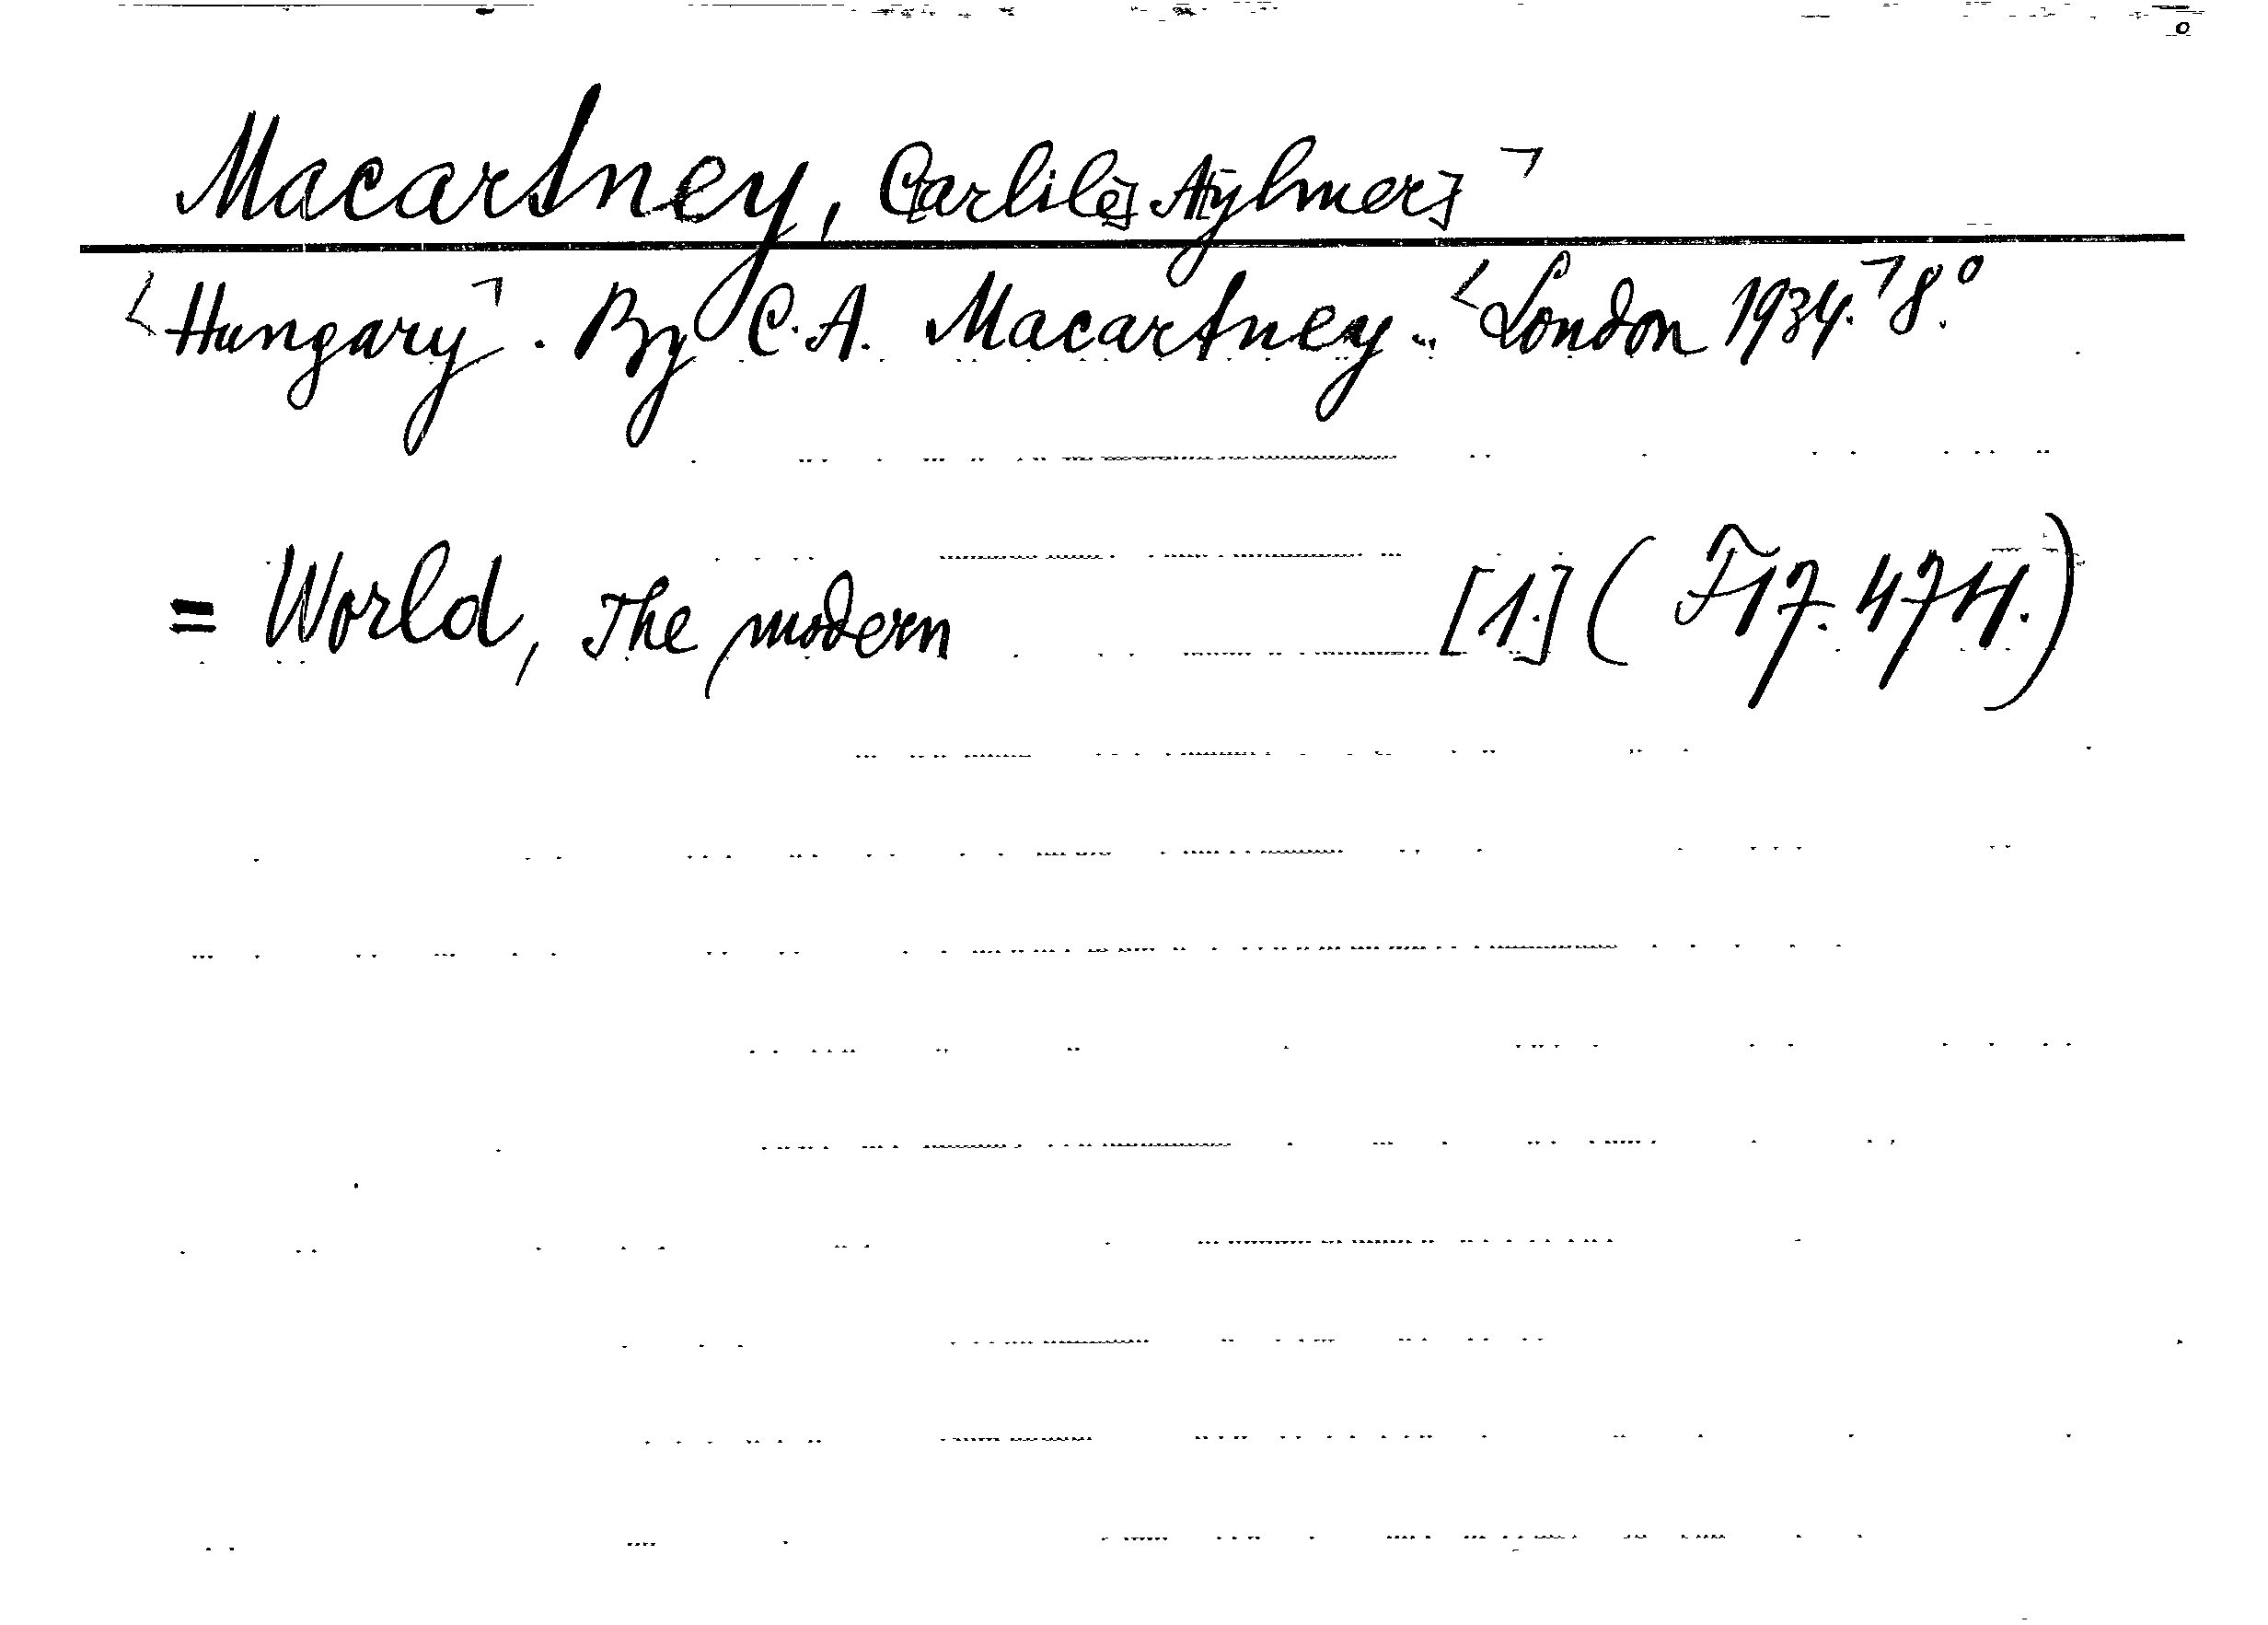 Macartney, C[arlile] A[ylmer]
<Hungary>. By C. A. Macartney.. <London 1934.> 8.°
= World, The modern [1.] (F17.474.)